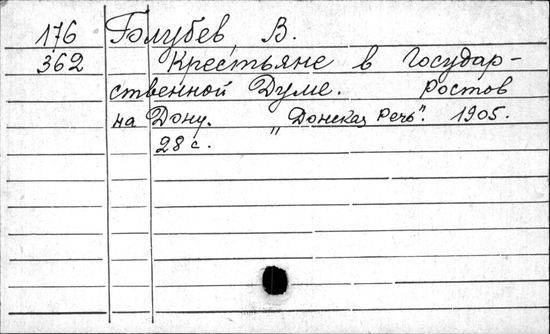 176 Голубев В.
362 Крестьяне в Государ-
ственной Думе. Ростов
на Дону. "Донская Речь". 1905.
28 с.